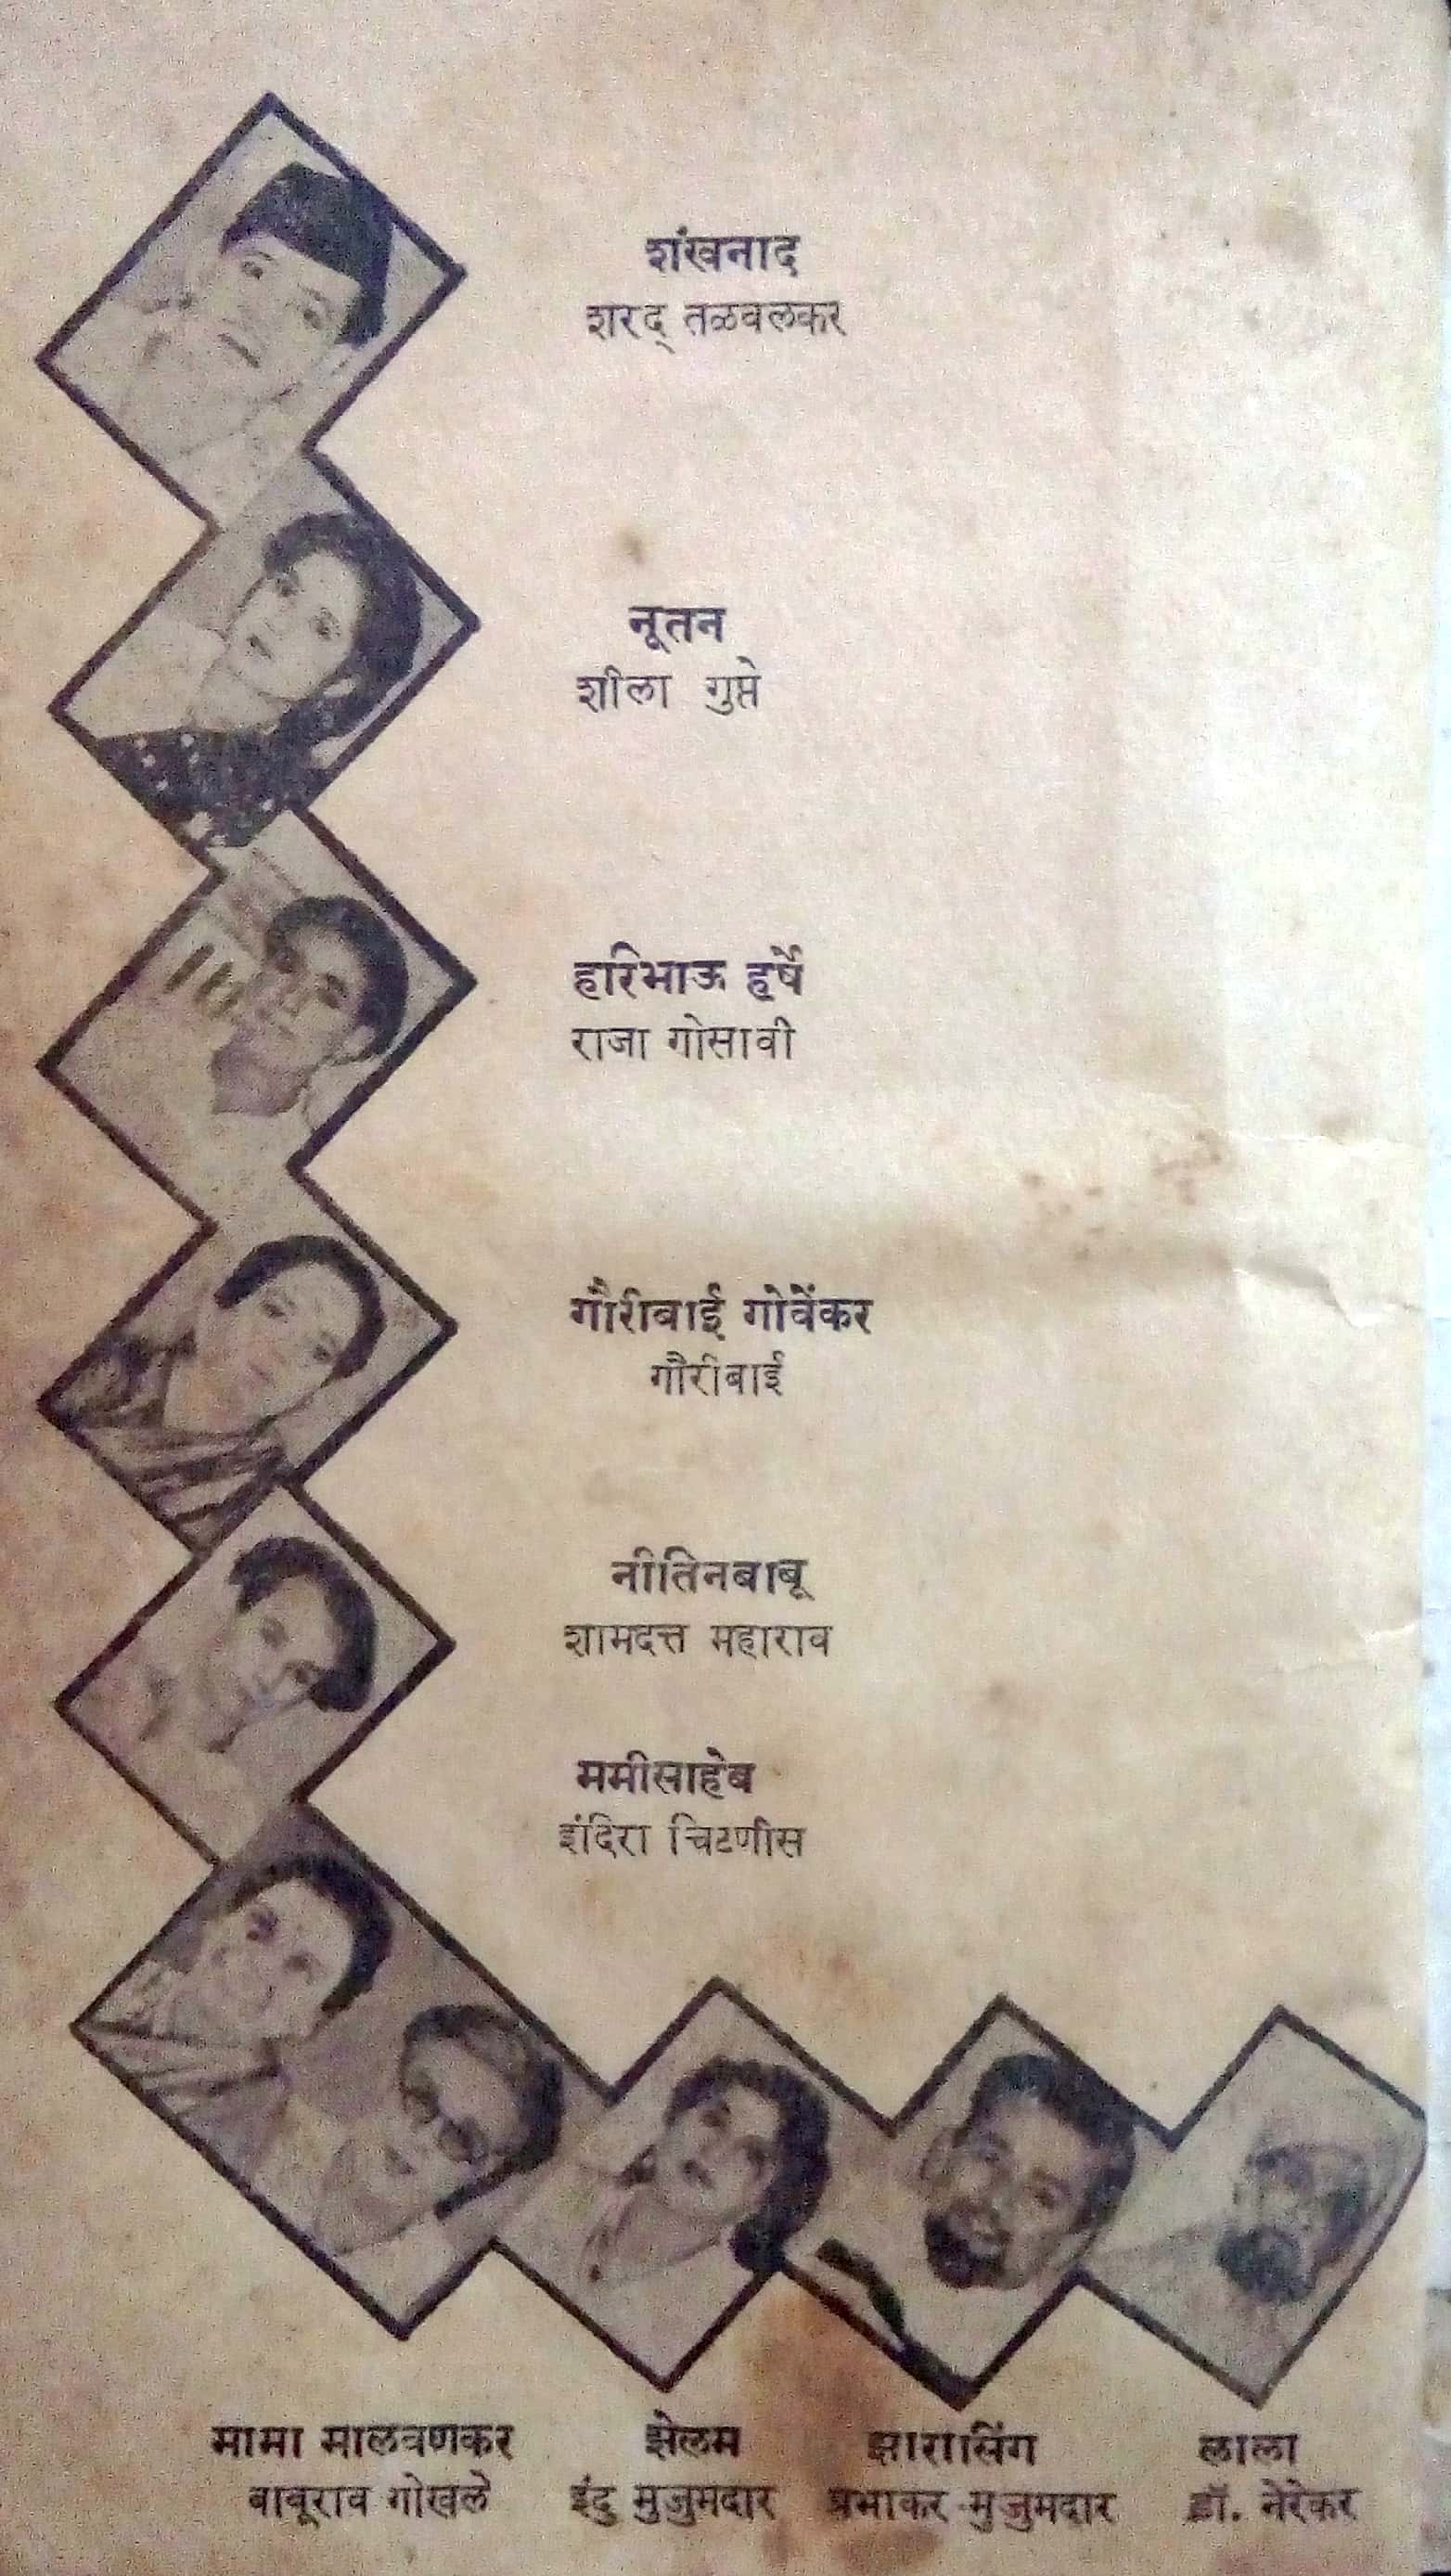 शंखनाद
शरद् तळवलकर
नूतन
शीला गुप्ते
हरिभाऊ हर्षे
राजा गोसावी
गौरीबाई गोवेंकर
गौरीबाई
नीतिनबाबू
शामदत्त महाराव
ममीसाहेब
इंदिरा चिटणीस
मामा मालवणकर
बाबूराव गोखले
झेलम
इंदु मुजुमदार
झारासिंग
प्रभाकर मुजुमदार
लाला
डॉ. नेरेकर